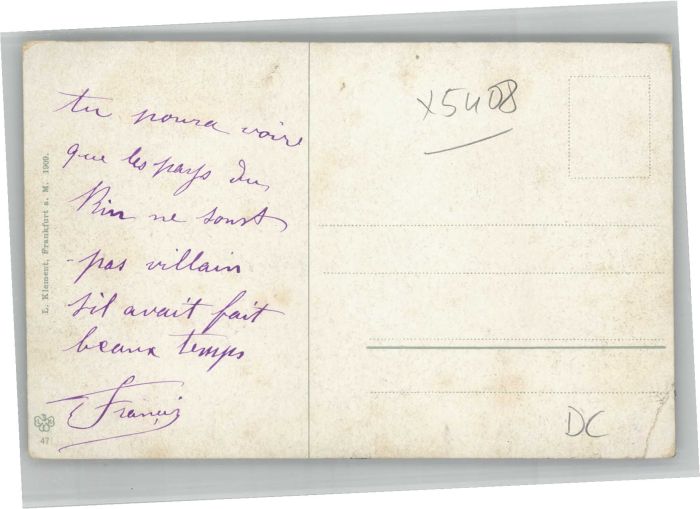 tu poura voire
que les pays du
Rin ne sont
pas villain
sil avait fait
beaux temps
Francis
L. Klement, Frankfurt a. M. 1909.
47
X5408
DC